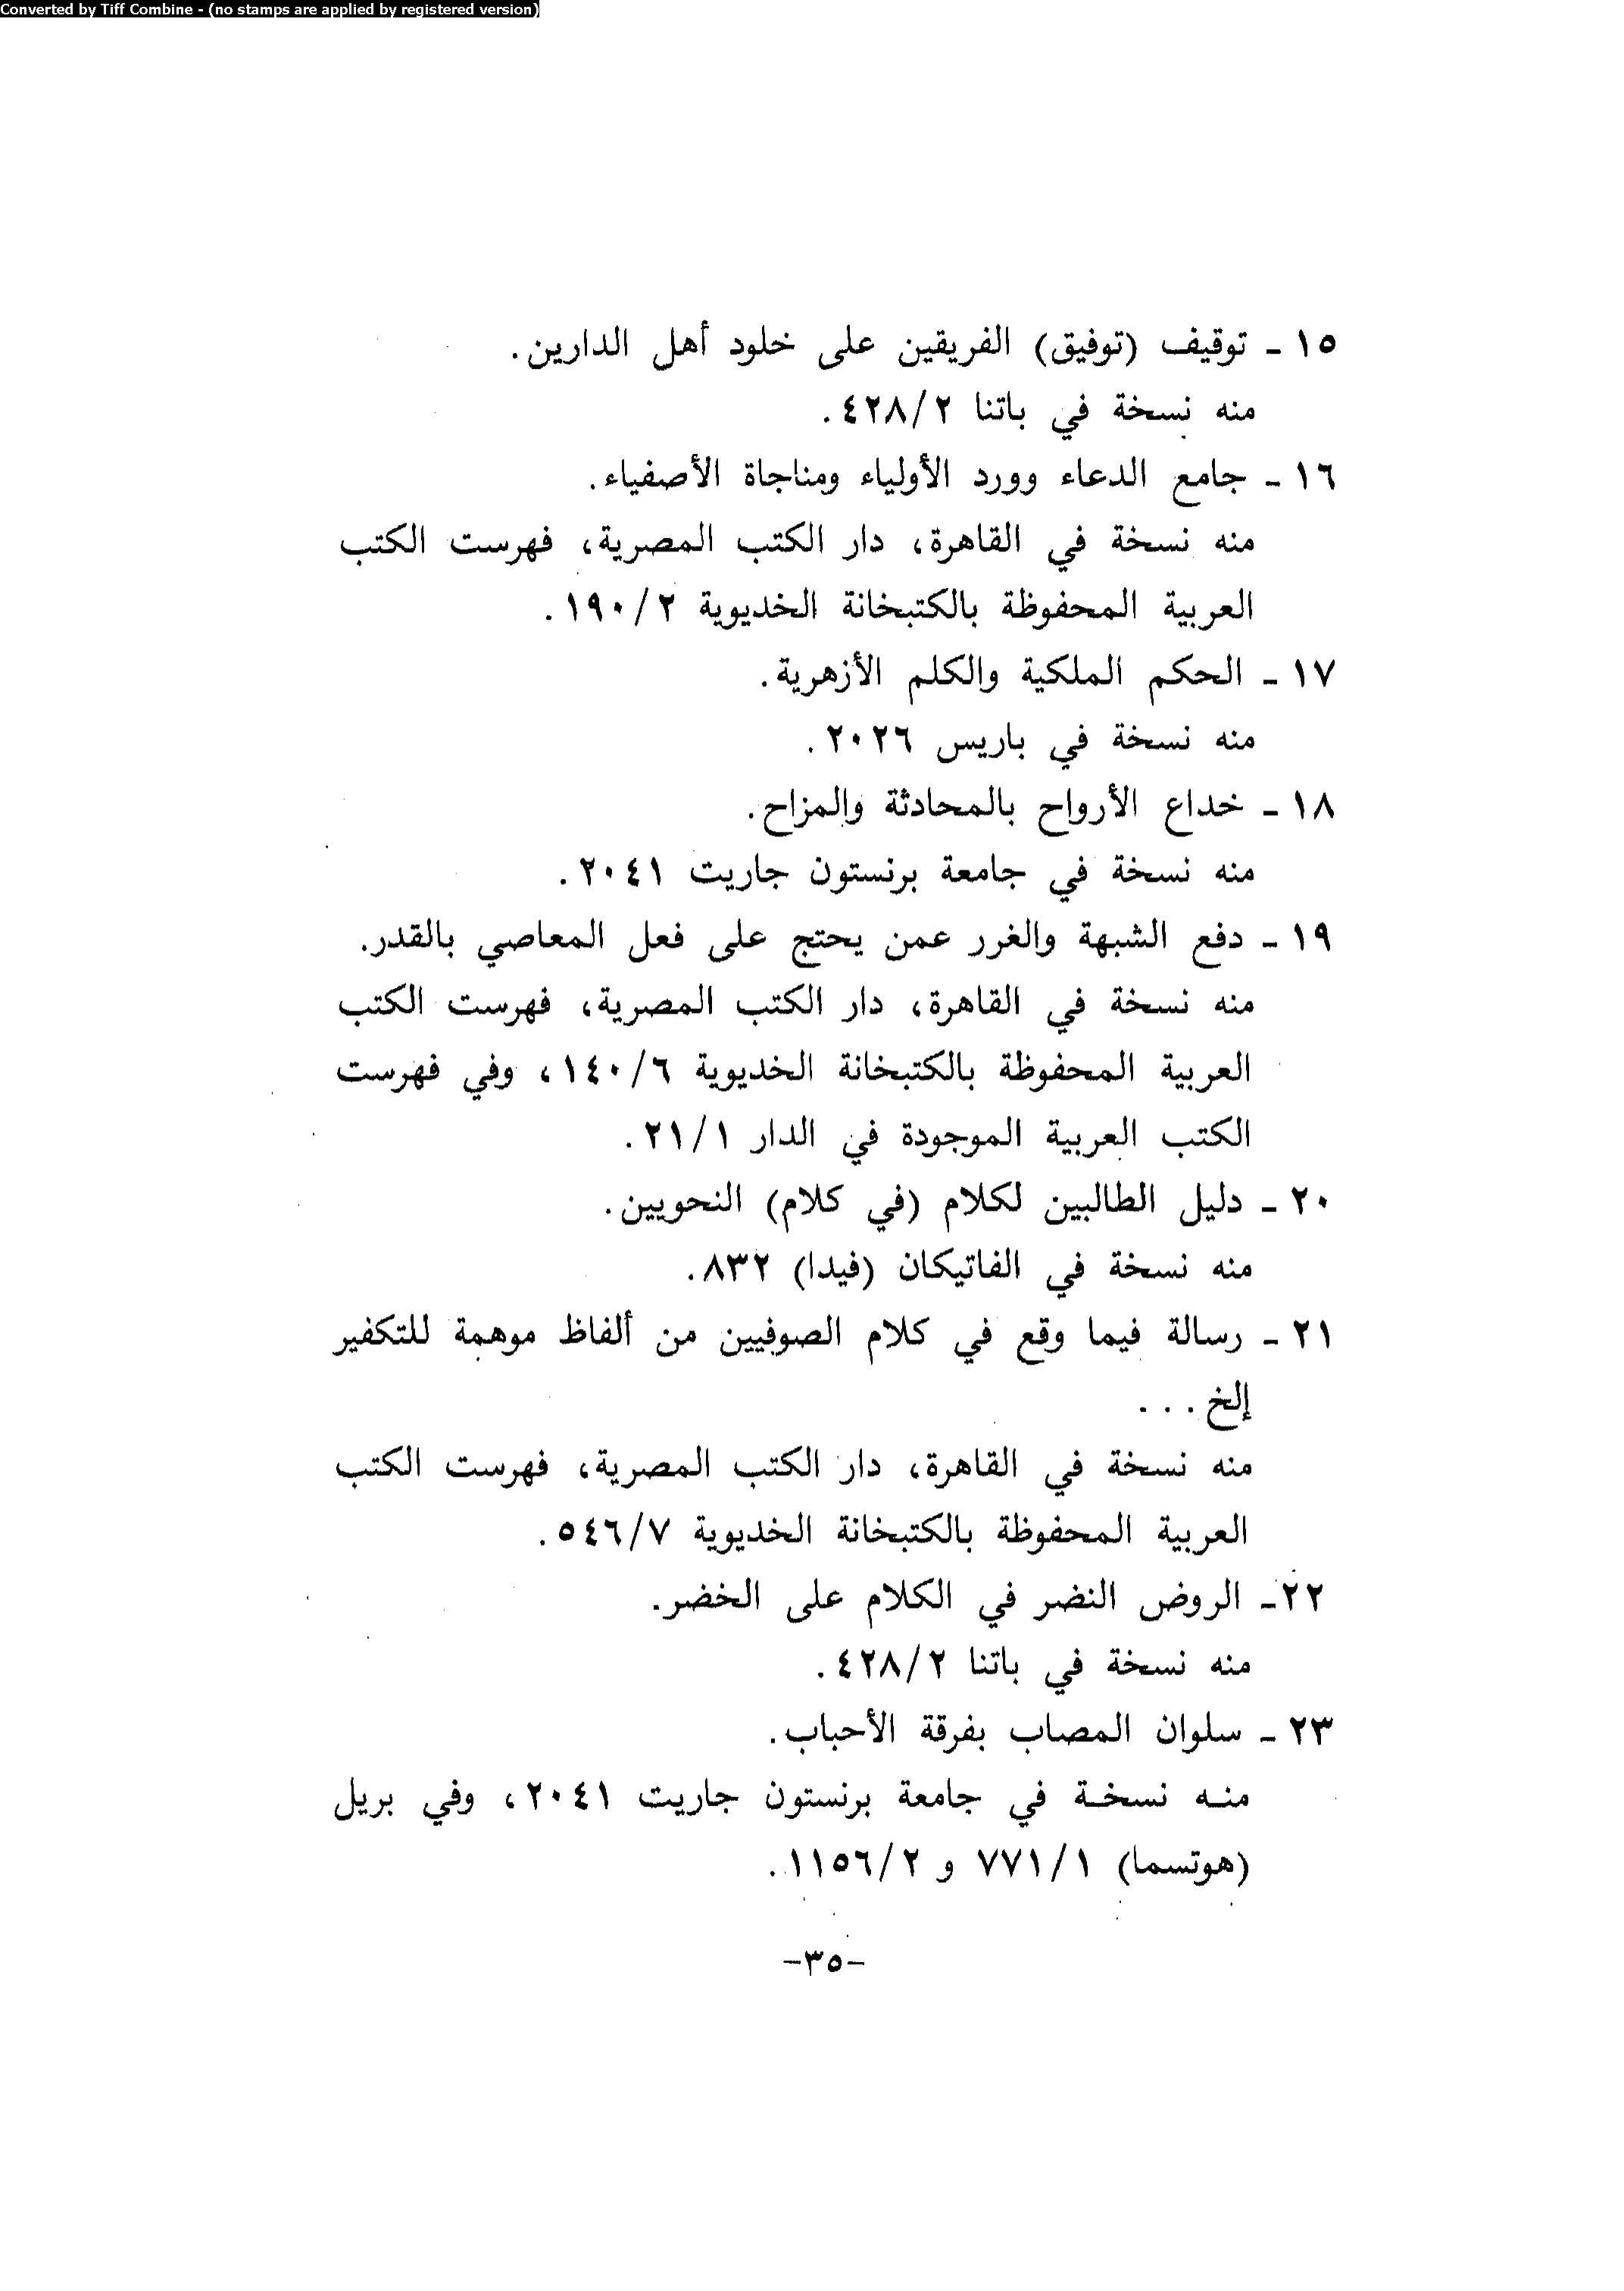 Converted by Tiff Combine - (no stamps are applied by registered version)
١٥ - توقيف (توفيق) الفريقين على خلود أهل الدارين.
منه نسخة في باتنا ٤٢٨/٢.
١٦ - جامع الدعاء وورد الأولياء ومناجاة الأصفياء.
منه نسخة في القاهرة، دار الكتب المصرية، فهرست الكتب
العربية المحفوظة بالكتبخانة الخديوية ١٩٠/٢.
١٧ - الحكم الملكية والكلم الأزهرية.
منه نسخة في باريس ٢٠٢٦.
١٨ - خداع الأرواح بالمحادثة والمزاح.
منه نسخة في جامعة برنستون جاريت ٢٠٤١.
١٩ - دفع الشبهة والغرر عمن يحتج على فعل المعاصي بالقدر.
منه نسخة في القاهرة، دار الكتب المصرية، فهرست الكتب
العربية المحفوظة بالكتبخانة الخديوية ١٤٠/٦، وفي فهرست
الكتب العربية الموجودة في الدار ٢١/١.
٢٠ - دليل الطالبين لكلام (في كلام) النحويين.
منه نسخة في الفاتيكان (فيدا) ٨٣٢.
٢١ - رسالة فيما وقع في كلام الصوفيين من ألفاظ موهمة للتكفير
إلخ...
منه نسخة في القاهرة، دار الكتب المصرية، فهرست الكتب
العربية المحفوظة بالكتبخانة الخديوية ٥٤٦/٧.
٢٢- الروض النضر في الكلام على الخضر.
منه نسخة في باتنا ٤٢٨/٢.
٢٣ - سلوان المصاب بفرقة الأحباب.
منه نسخة في جامعة برنستون جاريت ٢٠٤١، وفي بريل
(هوتسما) ٧٧١/١ و ١١٥٦/٢.
-٣٥-